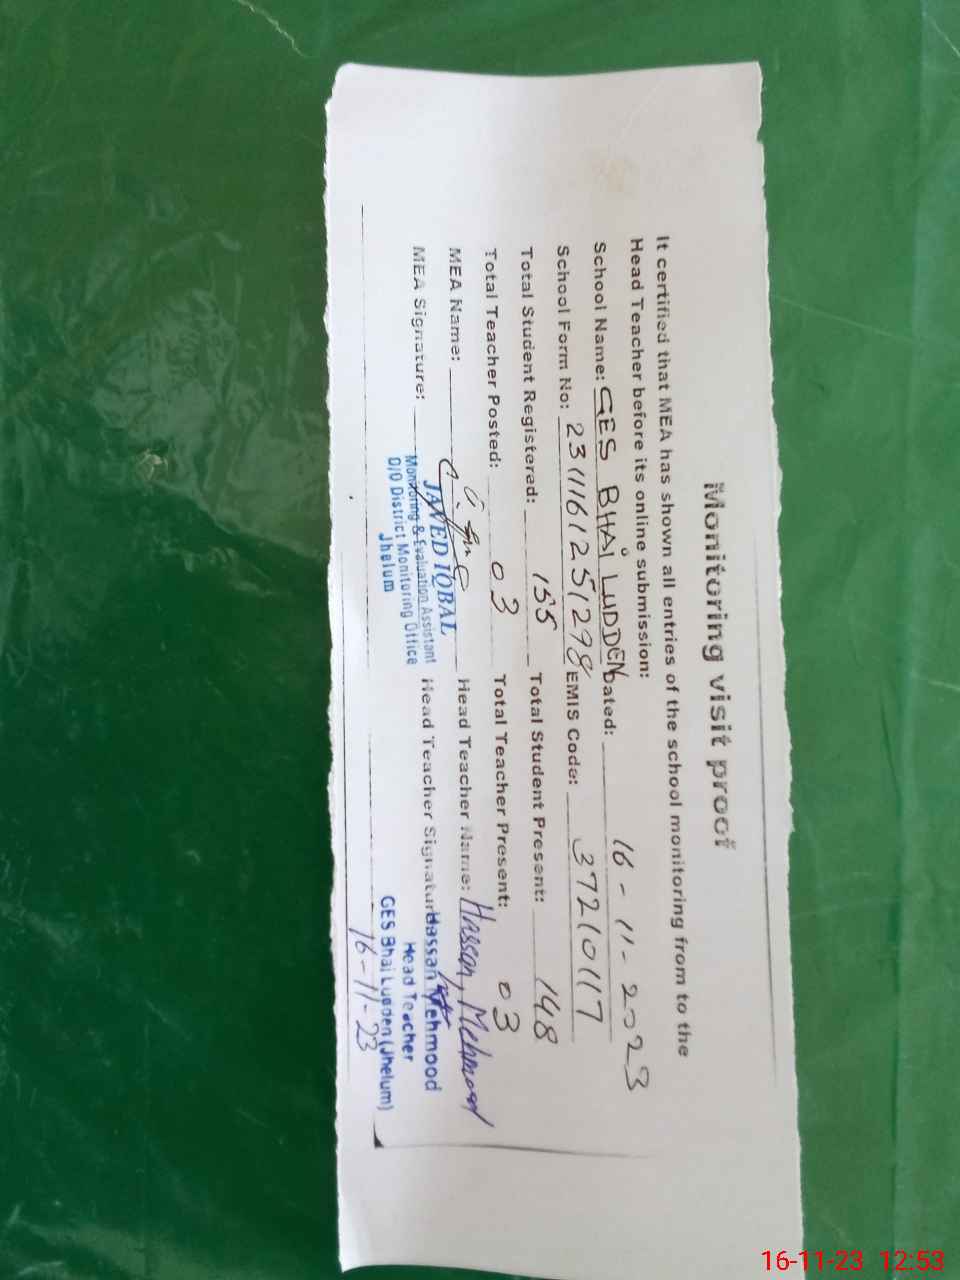 Monitoring visit proof
It certified that MEA has shown all entries of the school monitoring from to the
Head Teacher before its online submission:
School Name: GES BHAI LUDDEN Dated: 16-11-2023
School Form No: EMIS Code: 37210117
Total Student Registered: 155 Total Student Present: 148
Total Teacher Posted: 03 Total Teacher Present: 03
MEA Name: Head Teacher Name: Hassan Mehmood
MEA Signature: Head Teacher Signature
JAVED IQBAL
Monitoring & Evaluation Assistant
D/O District Monitoring Office
Jhelum
Hassan Mehmood
Head Teacher
GES Bhai Ludden (Jhelum)
16-11-23
16-11-23 12:53